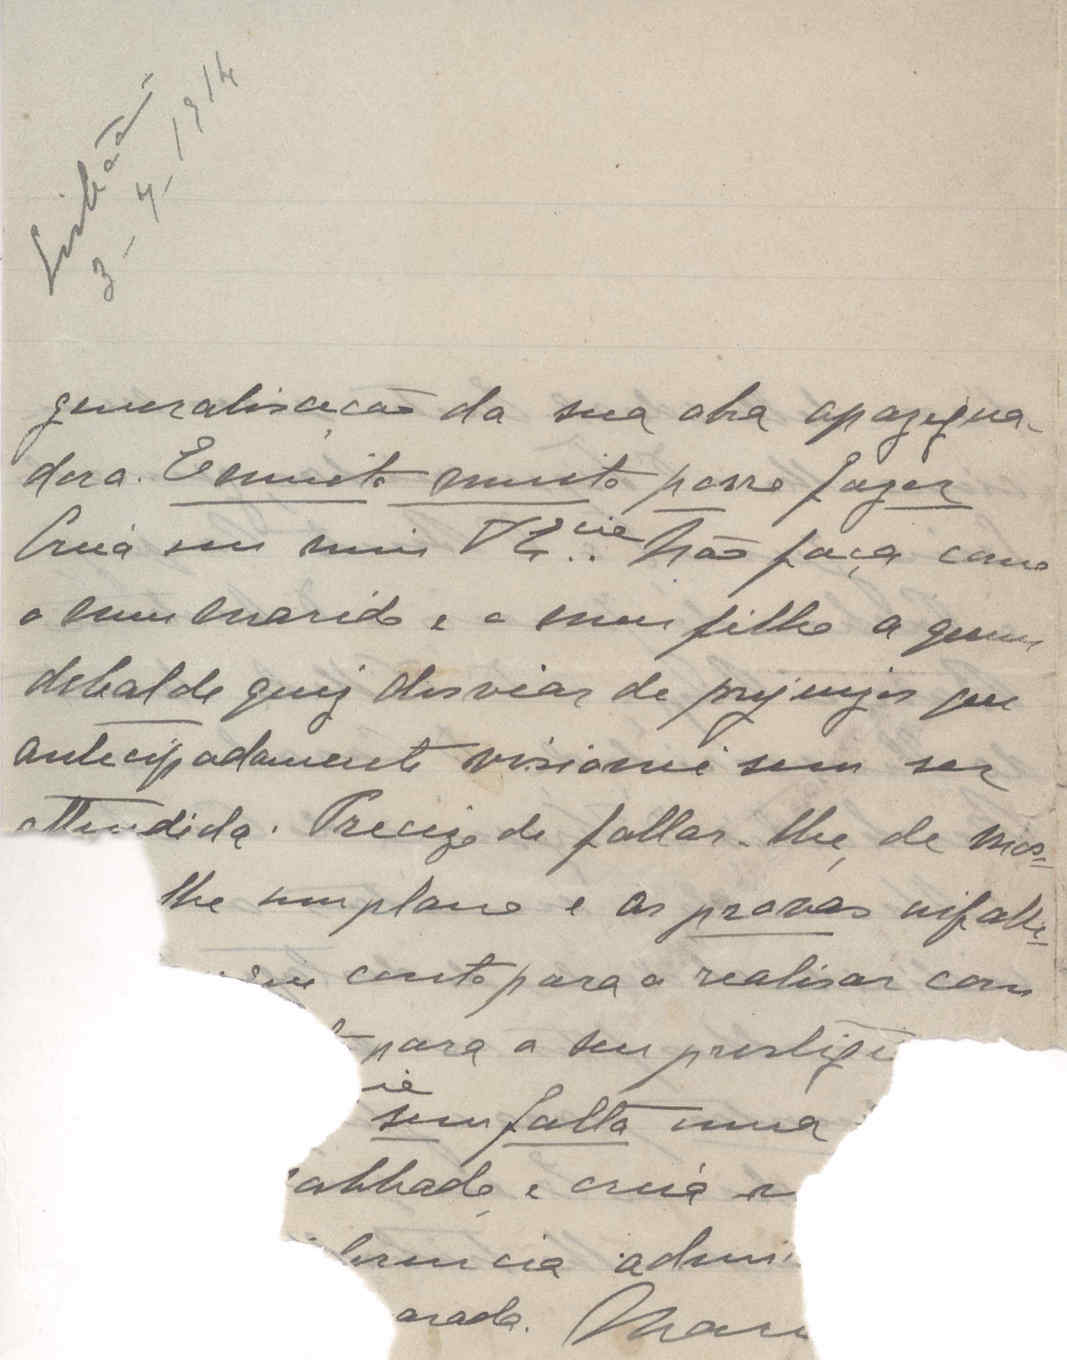 Lisbôa
3-4-1914
generalisação da sua obra apazigua-
dora. E muito muito posso fazer
Creia em mim V. Ex.cia. Não faça como
o meu marido e o meu filho a quem
debalde quiz desviar de prejuizos que
antecipadamente visionei sem ser
attendida. Precizo de fallar-lhe, de mos=
lhe um plano e as provas
conto para o realisar com
para o seu prestigi
sem falta uma
abbado, e creia
encia admi
orada. Mari